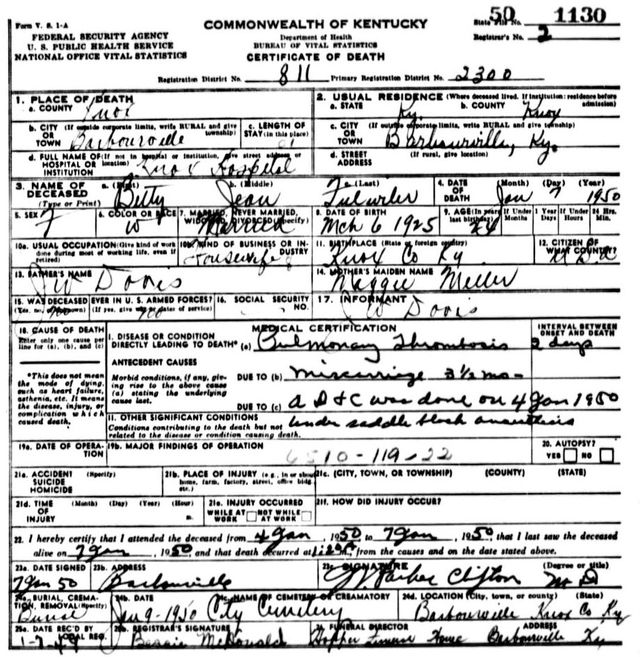 Form V. S. 1-A
FEDERAL SECURITY AGENCY
U. S. PUBLIC HEALTH SERVICE
NATIONAL OFFICE VITAL STATISTICS
COMMONWEALTH OF KENTUCKY
Department of Health
BUREAU OF VITAL STATISTICS
CERTIFICATE OF DEATH
State File No. 50 1130
Registrar's No. 2
Registration District No. 811 Primary Registration District No. 2300
1. PLACE OF DEATH
a. COUNTY Knox
b. CITY (If outside corporate limits, write RURAL and give township) OR TOWN Barbourville
c. LENGTH OF STAY (in this place)
d. FULL NAME OF (If not in hospital or institution, give street address or location) HOSPITAL OR INSTITUTION Knox Hospital
2. USUAL RESIDENCE (Where deceased lived. If institution: residence before admission)
a. STATE Ky. b. COUNTY Knox
c. CITY (If outside corporate limits, write RURAL and give township) OR TOWN Barbourville, Ky.
d. STREET ADDRESS (If rural, give location)
3. NAME OF DECEASED (Type or Print) a. (First) Betty b. (Middle) Jean c. (Last)
4. DATE OF DEATH (Month) (Day) (Year) Jan 7 1950
5. SEX F 6. COLOR OR RACE W 7. MARRIED, NEVER MARRIED, WIDOWED, DIVORCED (Specify) Married
8. DATE OF BIRTH Mch 6 1925 9. AGE (In years last birthday) 24 If Under 1 Year Months Days If Under 24 Hrs. Hours Min.
10a. USUAL OCCUPATION (Give kind of work done during most of working life, even if retired) 10b. KIND OF BUSINESS OR INDUSTRY Housewife
11. BIRTHPLACE (State or foreign country) Knox Co Ky 12. CITIZEN OF WHAT COUNTRY? U S A
13. FATHER'S NAME J W Davis 14. MOTHER'S MAIDEN NAME Maggie Miller
15. WAS DECEASED EVER IN U. S. ARMED FORCES? (Yes, no, or unknown) (If yes, give war or dates of service) no 16. SOCIAL SECURITY NO. 17. INFORMANT J W Davis
18. CAUSE OF DEATH
Enter only one cause per line for (a), (b), and (c)
*This does not mean the mode of dying, such as heart failure, asthenia, etc. It means the disease, injury, or complication which caused death.
MEDICAL CERTIFICATION
INTERVAL BETWEEN ONSET AND DEATH
I. DISEASE OR CONDITION DIRECTLY LEADING TO DEATH* (a) Pulmonary Thrombosis 2 days
ANTECEDENT CAUSES
Morbid conditions, if any, giving rise to the above cause (a) stating the underlying cause last.
DUE TO (b) Miscarriage 3½ mo-
DUE TO (c) a D & C was done on 4 Jan 1950
II. OTHER SIGNIFICANT CONDITIONS
Conditions contributing to the death but not related to the disease or condition causing death.
under saddle block anaesthesis
19a. DATE OF OPERATION 19b. MAJOR FINDINGS OF OPERATION 6510-119-22 20. AUTOPSY? YES NO
21a. ACCIDENT SUICIDE HOMICIDE (Specify) 21b. PLACE OF INJURY (e.g., in or about home, farm, factory, street, office bldg., etc.) 21c. (CITY, TOWN, OR TOWNSHIP) (COUNTY) (STATE)
21d. TIME OF INJURY (Month) (Day) (Year) (Hour) m. 21e. INJURY OCCURRED WHILE AT WORK NOT WHILE AT WORK 21f. HOW DID INJURY OCCUR?
22. I hereby certify that I attended the deceased from 4 Jan, 1950 to 7 Jan, 1950 that I last saw the deceased
alive on 7 Jan, 1950, and that death occurred at from the causes and on the date stated above.
23a. DATE SIGNED 7 Jan 50 23b. ADDRESS Barbourville 23c. SIGNATURE Clifton (Degree or title) M D
24a. BURIAL, CREMATION, REMOVAL (Specify) Burial 24b. DATE Jan 9-1950 24c. NAME OF CEMETERY OR CREMATORY City Cemetery 24d. LOCATION (City, town, or county) (State) Barbourville Knox Co Ky
25a. DATE REC'D BY LOCAL REG. 1-7-49 25b. REGISTRAR'S SIGNATURE Bessie McDonald 26. FUNERAL DIRECTOR Hopper Funeral Home ADDRESS Barbourville Ky